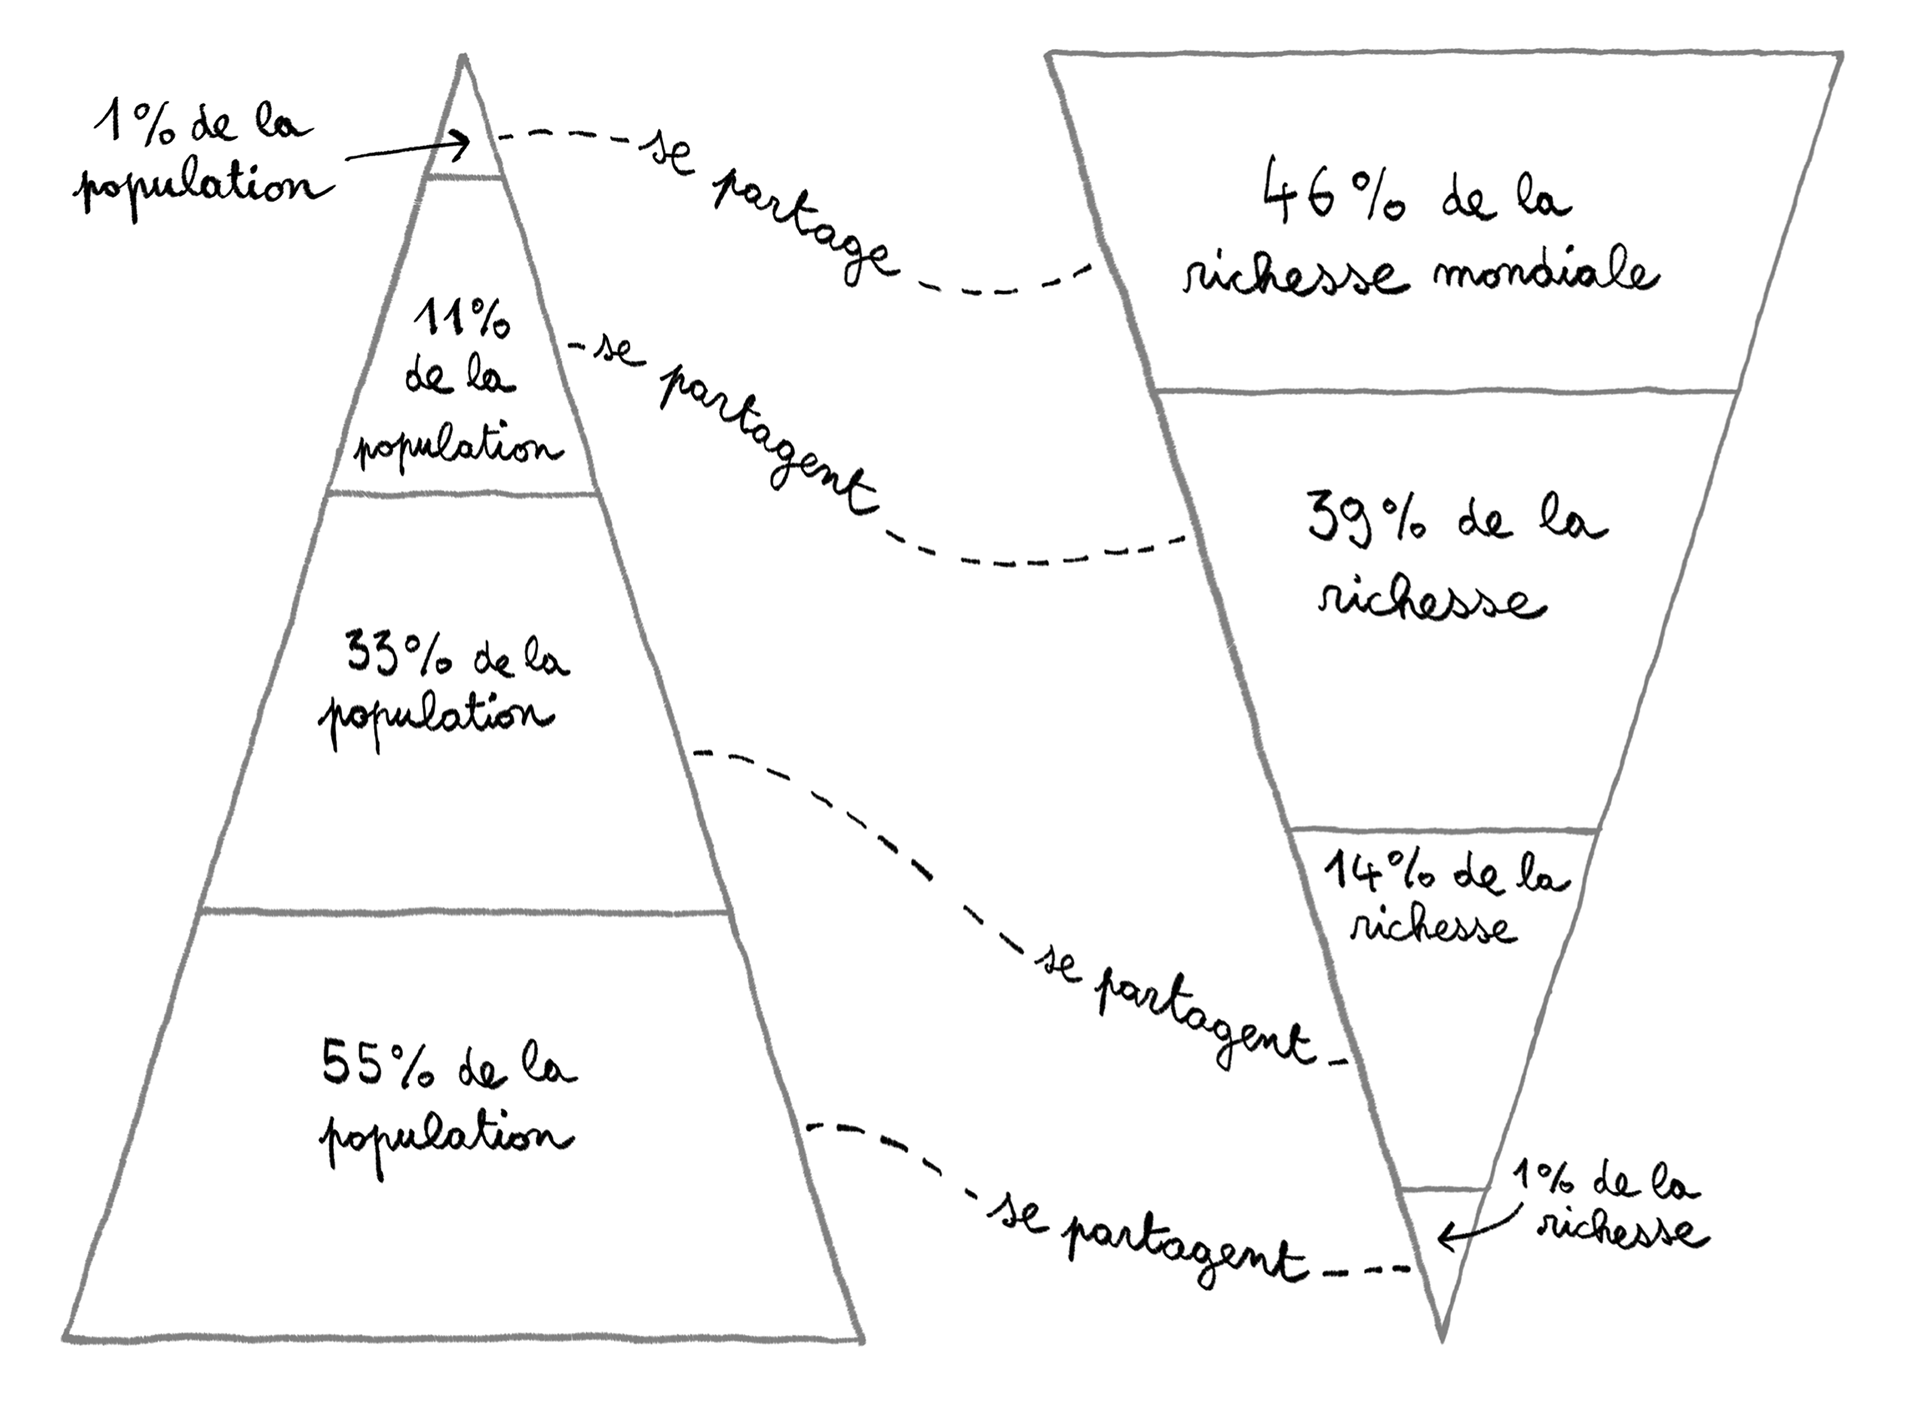 1% de la
population
se partage
46% de la
richesse mondiale
11%
de la
population
se partagent
39% de la
richesse
33% de la
population
se partagent
14% de la
richesse
55% de la
population
se partagent
1% de la
richesse